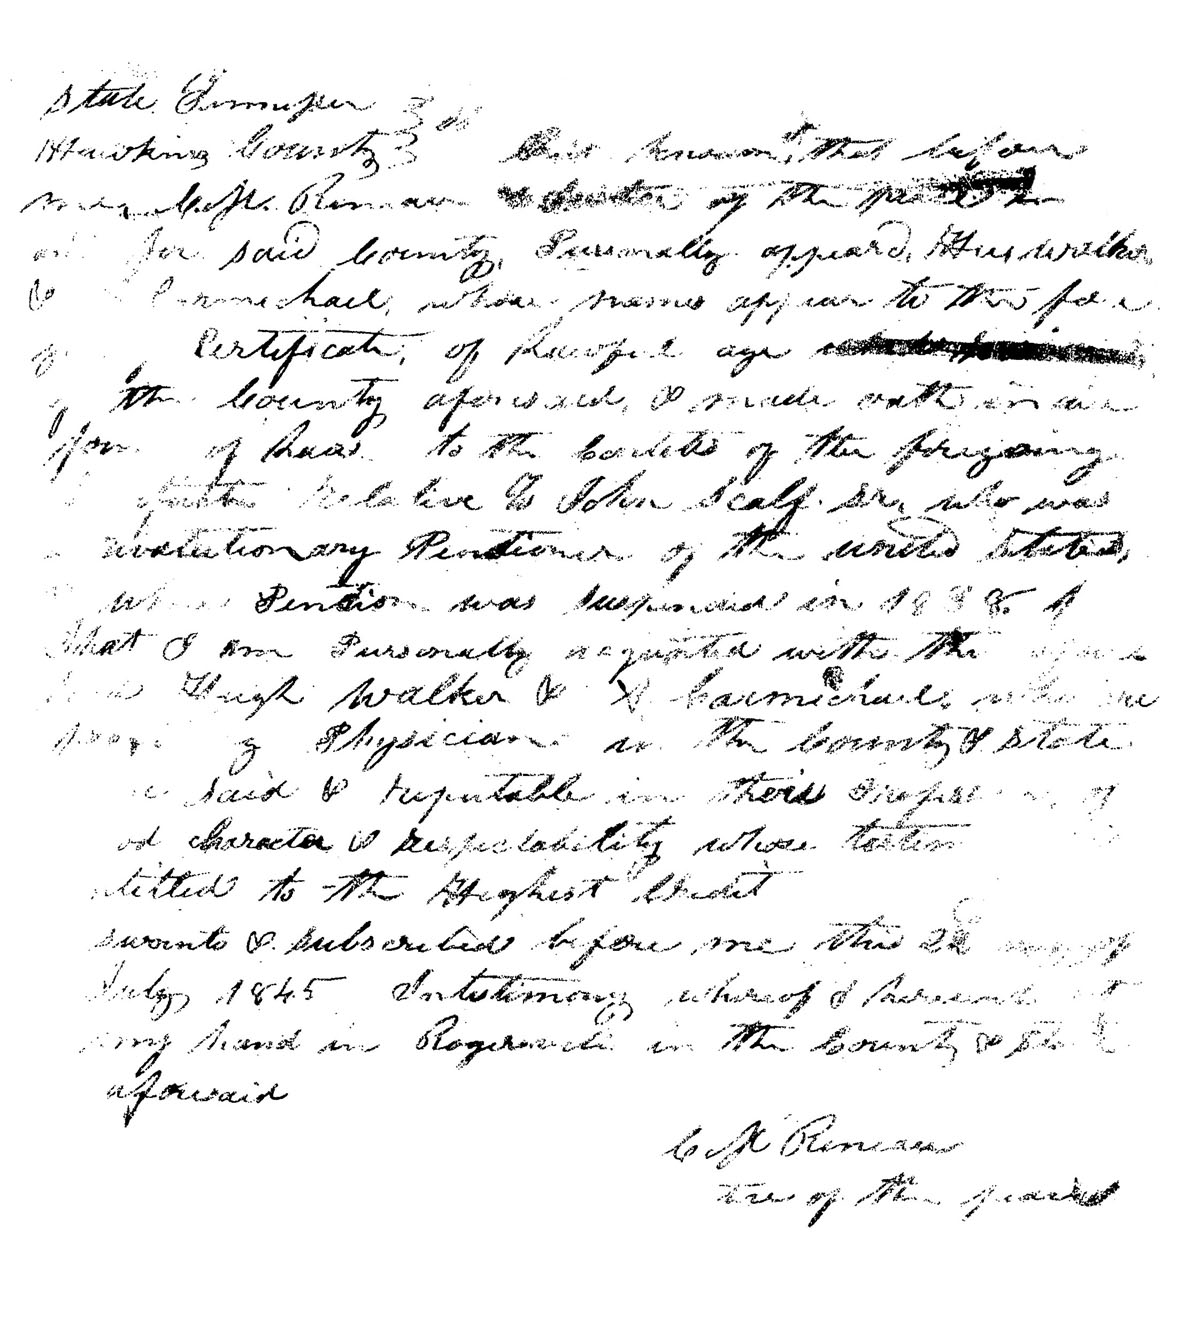 State Tennessee
Hawkins County ss Be it known, that before
me, C. N. Reneau a Justice of the peace in
and for said County, Personally appeard, Hue walker
& Carmichael, whose names appear to the fore
Certificate, of Lawful age
the County aforesaid, & made oath in due
form of Law to the Contets of the foregoing
relative To John Scalf. Sr, who was
avolutionary Pentioner of the united States,
whose Pention was suspended in 1838 &
that I am Pursonally aequnted with the afore
said Hugh Walker & Carmichael, who are
Physician in the County & State
said & reputable in their Profession of
od Character & respectability whose testim
titled to the Highest Credit
swornto & subscribed before me this 22 day of
July 1845 Intestimony whereof I hereunto set
my hand in Rogersville in the County & State
aforesaid
C N Reneau
tice of the peace